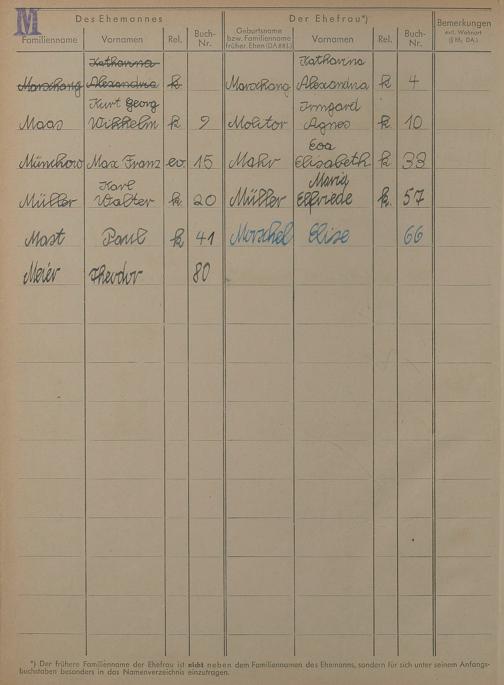 M
Des Ehemannes Der Ehefrau*) Bemerkungen
Familienname Vornamen Rel. Buch-Nr. Geburtsname bzw. Familienname früher. Ehen (DA 881.) Vornamen Rel. Buch-Nr.
Katharina Katharina
Marschang Alexandria k Marschang Alexandria k 4
Kurt Georg Irmgard
Maas Wilhelm k 9 Molitor Agnes k 10
Eva
Münchow Max Franz ev. 15 Mahr Elisabeth k 33
Karl Maria
Müller Walter k 20 Müller Elfriede k. 57
Mast Paul k 41 Morschel Elise 66
Meier Theodor 80
*) Der frühere Familienname der Ehefrau ist nicht neben dem Familiennamen des Ehemanns, sondern für sich unter seinem Anfangs-
buchstaben besonders in das Namenverzeichnis einzutragen.